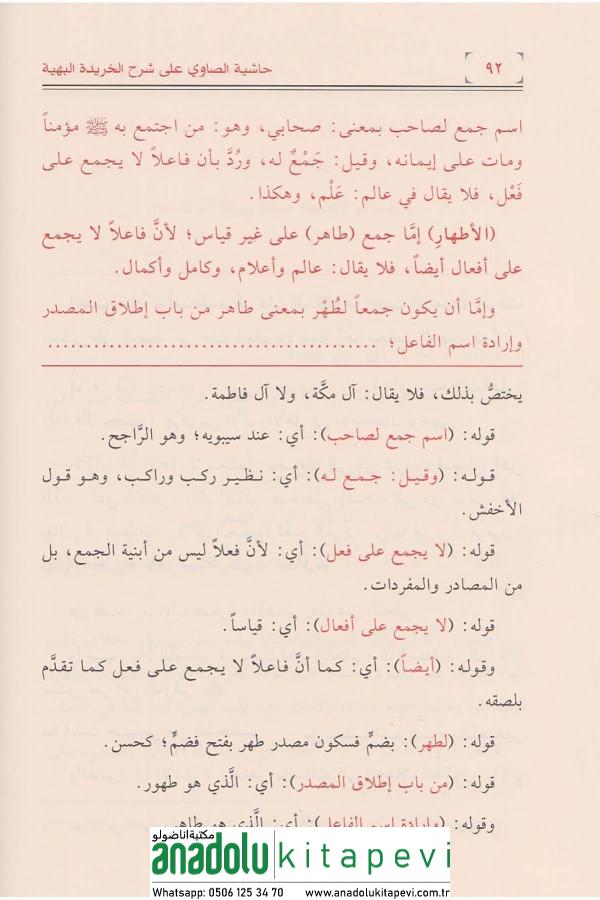 ٩٢
حاشية الصاوي على شرح الخريدة البهية
اسم جمع لصاحب بمعنى: صحابي، وهو: من اجتمع به ﷺ مؤمناً
ومات على إيمانه، وقيل: جَمْعٌ له، ورُدَّ بأن فاعلاً لا يجمع على
فَعْل، فلا يقال في عالم: عَلْم، وهكذا.
(الأطهارِ) إمَّا جمع (طاهر) على غير قياس؛ لأنَّ فاعلاً لا يجمع
على أفعال أيضاً، فلا يقال: عالم وأعلام، وكامل وأكمال.
وإمَّا أن يكون جمعاً لطُهْر بمعنى طاهر من باب إطلاق المصدر
وإرادة اسم الفاعل؛ ............................................
يختصُّ بذلك، فلا يقال: آل مكَّة، ولا آل فاطمة.
قوله: (اسم جمع لصاحب): أي: عند سيبويه؛ وهو الرَّاجح.
قوله: (وقيل: جمع له): أي: نظير ركب وراكب، وهو قول
الأخفش.
قوله: (لا يجمع على فعل): أي: لأنَّ فعلاً ليس من أبنية الجمع، بل
من المصادر والمفردات.
قوله: (لا يجمع على أفعال): أي: قياساً.
وقوله: (أيضاً): أي: كما أنَّ فاعلاً لا يجمع على فعل كما تقدَّم
بلصقه.
قوله: (لطهر): بضمٍّ فسكون مصدر طهر بفتح فضمٍّ؛ كحسن.
قوله: (من باب إطلاق المصدر): أي: الَّذي هو طهور.
وقوله: (وإرادة اسم الفاعل): أي: الَّذي هو طاهر
مكتبة اناضولو
anadolu kitapevi
Whatsapp: 0506 125 34 70 www.anadolukitapevi.com.tr